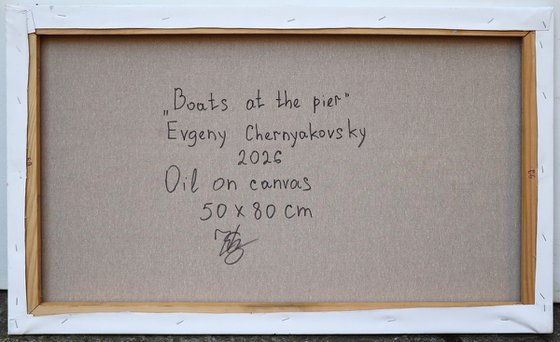 „Boats at the pier"
Evgeny Chernyakovsky
2026
Oil on canvas
50 x 80 cm